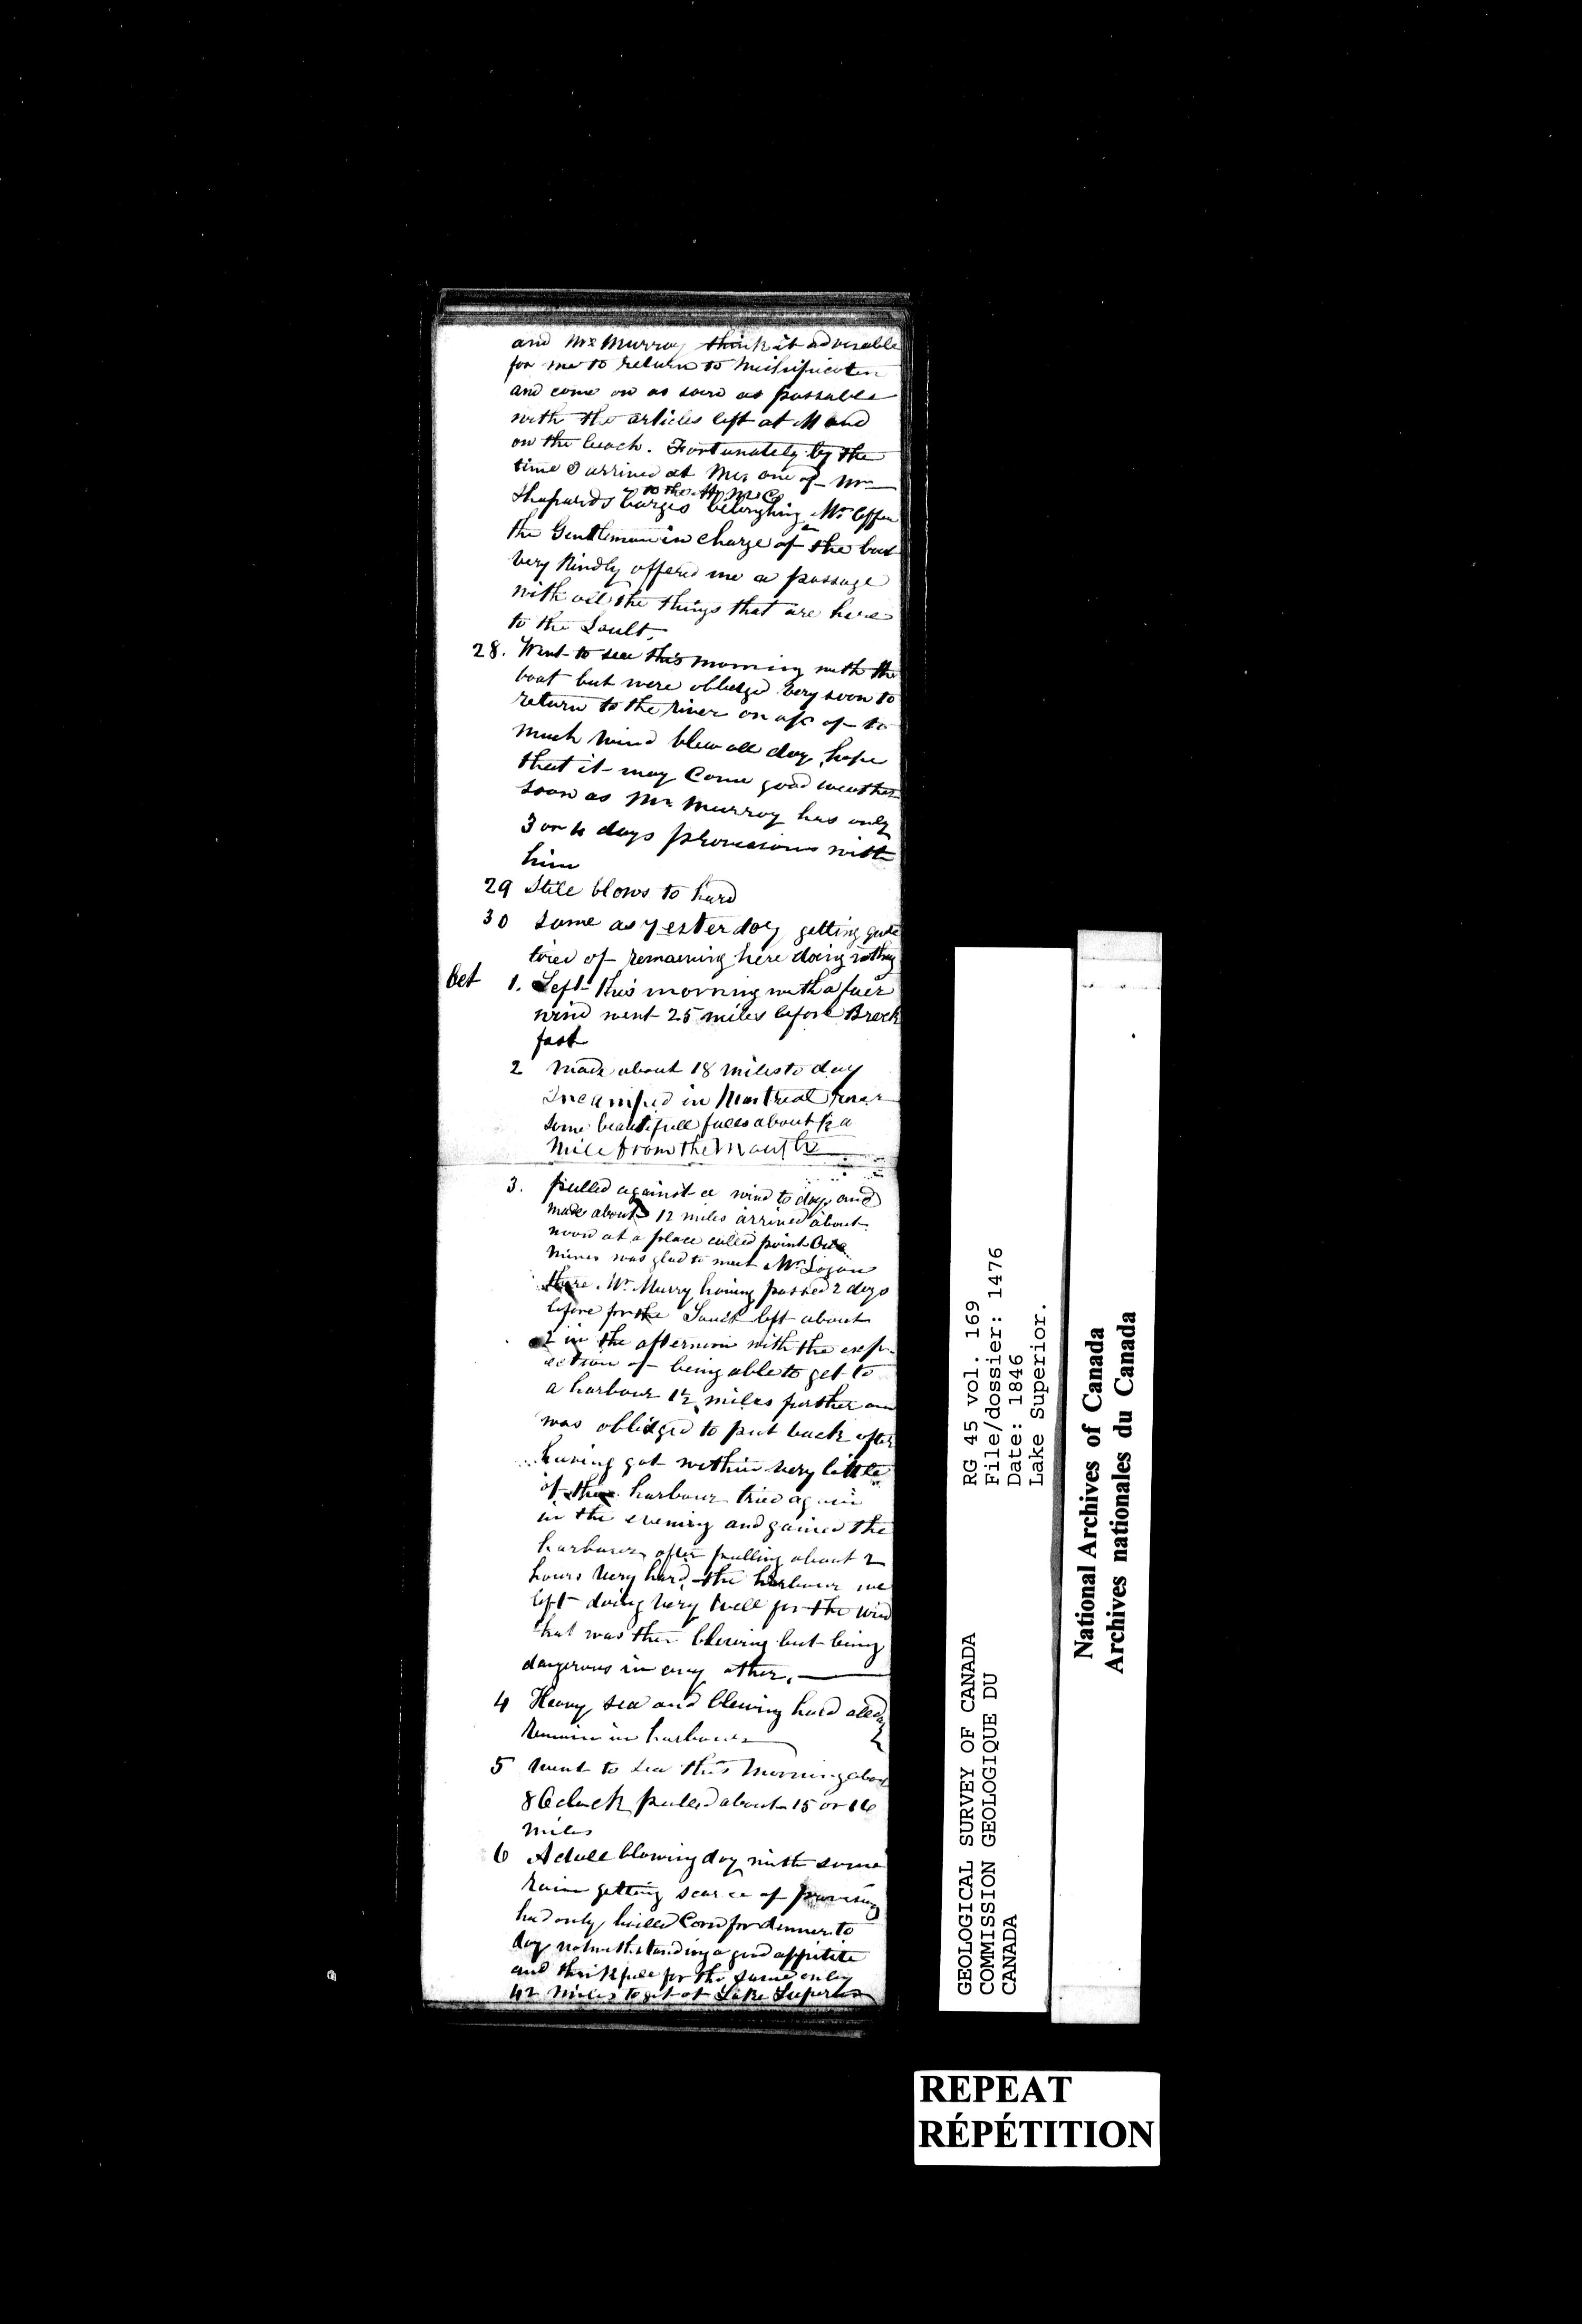 and Mr Murray think it advisable
for me to return to Michipicoten
and come on as soon as possable
with the articles left at M and
on the beach. Fortunately by the
time I arrived at one of
to the M Co
Shepards barges belonghing Mr
the Gentleman in charge of the boat
very kindly offered me a passage
with all the things that are here
to the Sault.
28. Went to sea this morning with the
boat but were obliged very soon to
return to the river on of to
much wind blew all day, hope
that it may come good weather
soon as Mr Murray has only
3 or 4 days provisions with
him
29 Still blows to hard
30 Same as yesterday getting quite
tired of remaining here doing nothing
Oct 1. Left this morning with a fair
wind went 25 miles before Breck
fast
2 Made about 18 miles to day
Incamped in Montreal River
some beautifull falls about ½ a
mile from the Mouth
3. pulled against a wind to day and
made about 12 miles arrived about
noon at a place called point
Mines was glad to meet Mr Logan
there. Mr Murry having passed 2 days
before for the Sault left about
2 in the afternoon with the exp-
ectation of being able to get to
a harbour 1½ miles further and
was oblidged to put back after
having got within very little
of the harbour tried again
in the evening and gained the
harbour after pulling about 2
hours very hard, the harbour we
left doing very well for the wind
that was then blowing but being
dangerous in any other.
4 Heavy sea and blowing hard all day
Remain in harbour
5 Went to sea this Morning about
8 Oclock pulled about 15 or 16
miles
6 A dull blowing day with some
rain getting scarce of
had only boiled Corn for dinner to
day notwithstanding a good appitite
and thankfull for the same only
42 miles to get of Lake Superior
GEOLOGICAL SURVEY OF CANADA
COMMISSION GEOLOGIQUE DU
CANADA
RG 45 vol. 169
File/dossier: 1476
Date: 1846
Lake Superior.
National Archives of Canada
Archives nationales du Canada
REPEAT
RÉPÉTITION